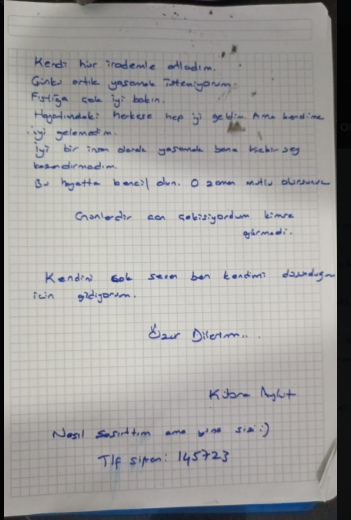 Kendi hür irademle atladım.
Çünkü artık yaşamak istemiyorum.
Fıstığa çok iyi bakın.
Hayatımdaki herkese hep iyi geldim Ama kendime
iyi gelemedim.
İyi bir insan olarak yaşamak bana hiçbir şey
kazandırmadım.
Bu hayatta bencil olun. O zaman mutlu olursunuz
can çekişiyordum kimse
görmedi.
Kendini çok seven ben kendimi
için gidiyorum.
Özür Dilerim...
Kübra
Nasıl şaşırttım ama yine sizi :)
Tlf şifrem: 145723